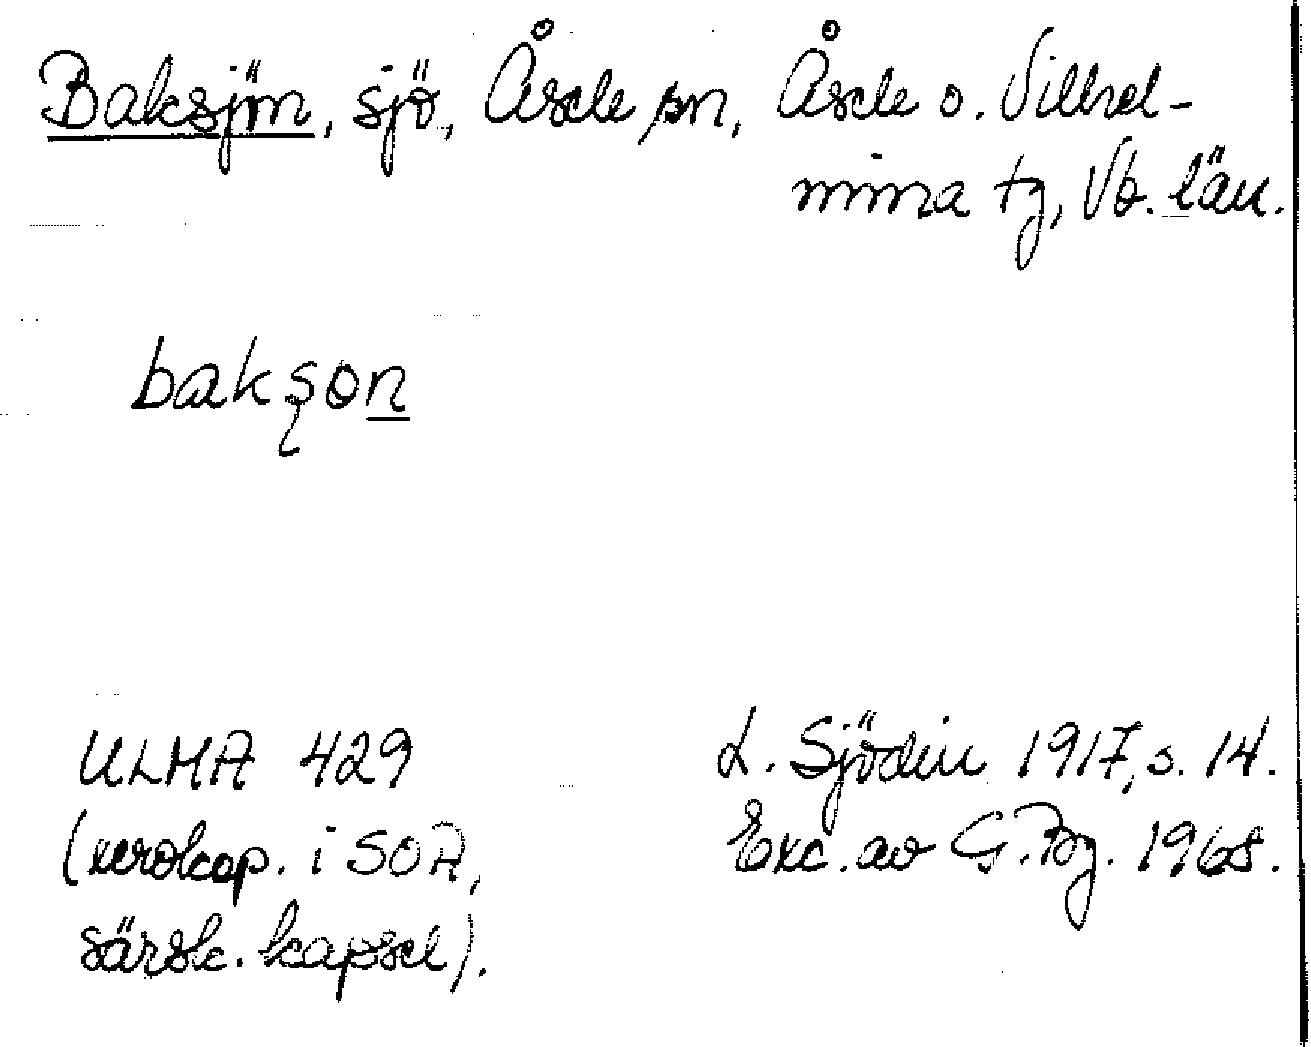 Baksjön, sjö, Åsele sn, Åsele o. Vilhel-
mina tg, Vb. län.
bakşon
ULMA 429
L. Sjödin 1917, s. 14.
(xerokop. i SOA,
Exc. av G. Bg. 1968.
särsk. kapsel).